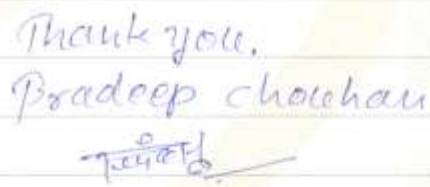 Thank you.
Pradeep chouhan